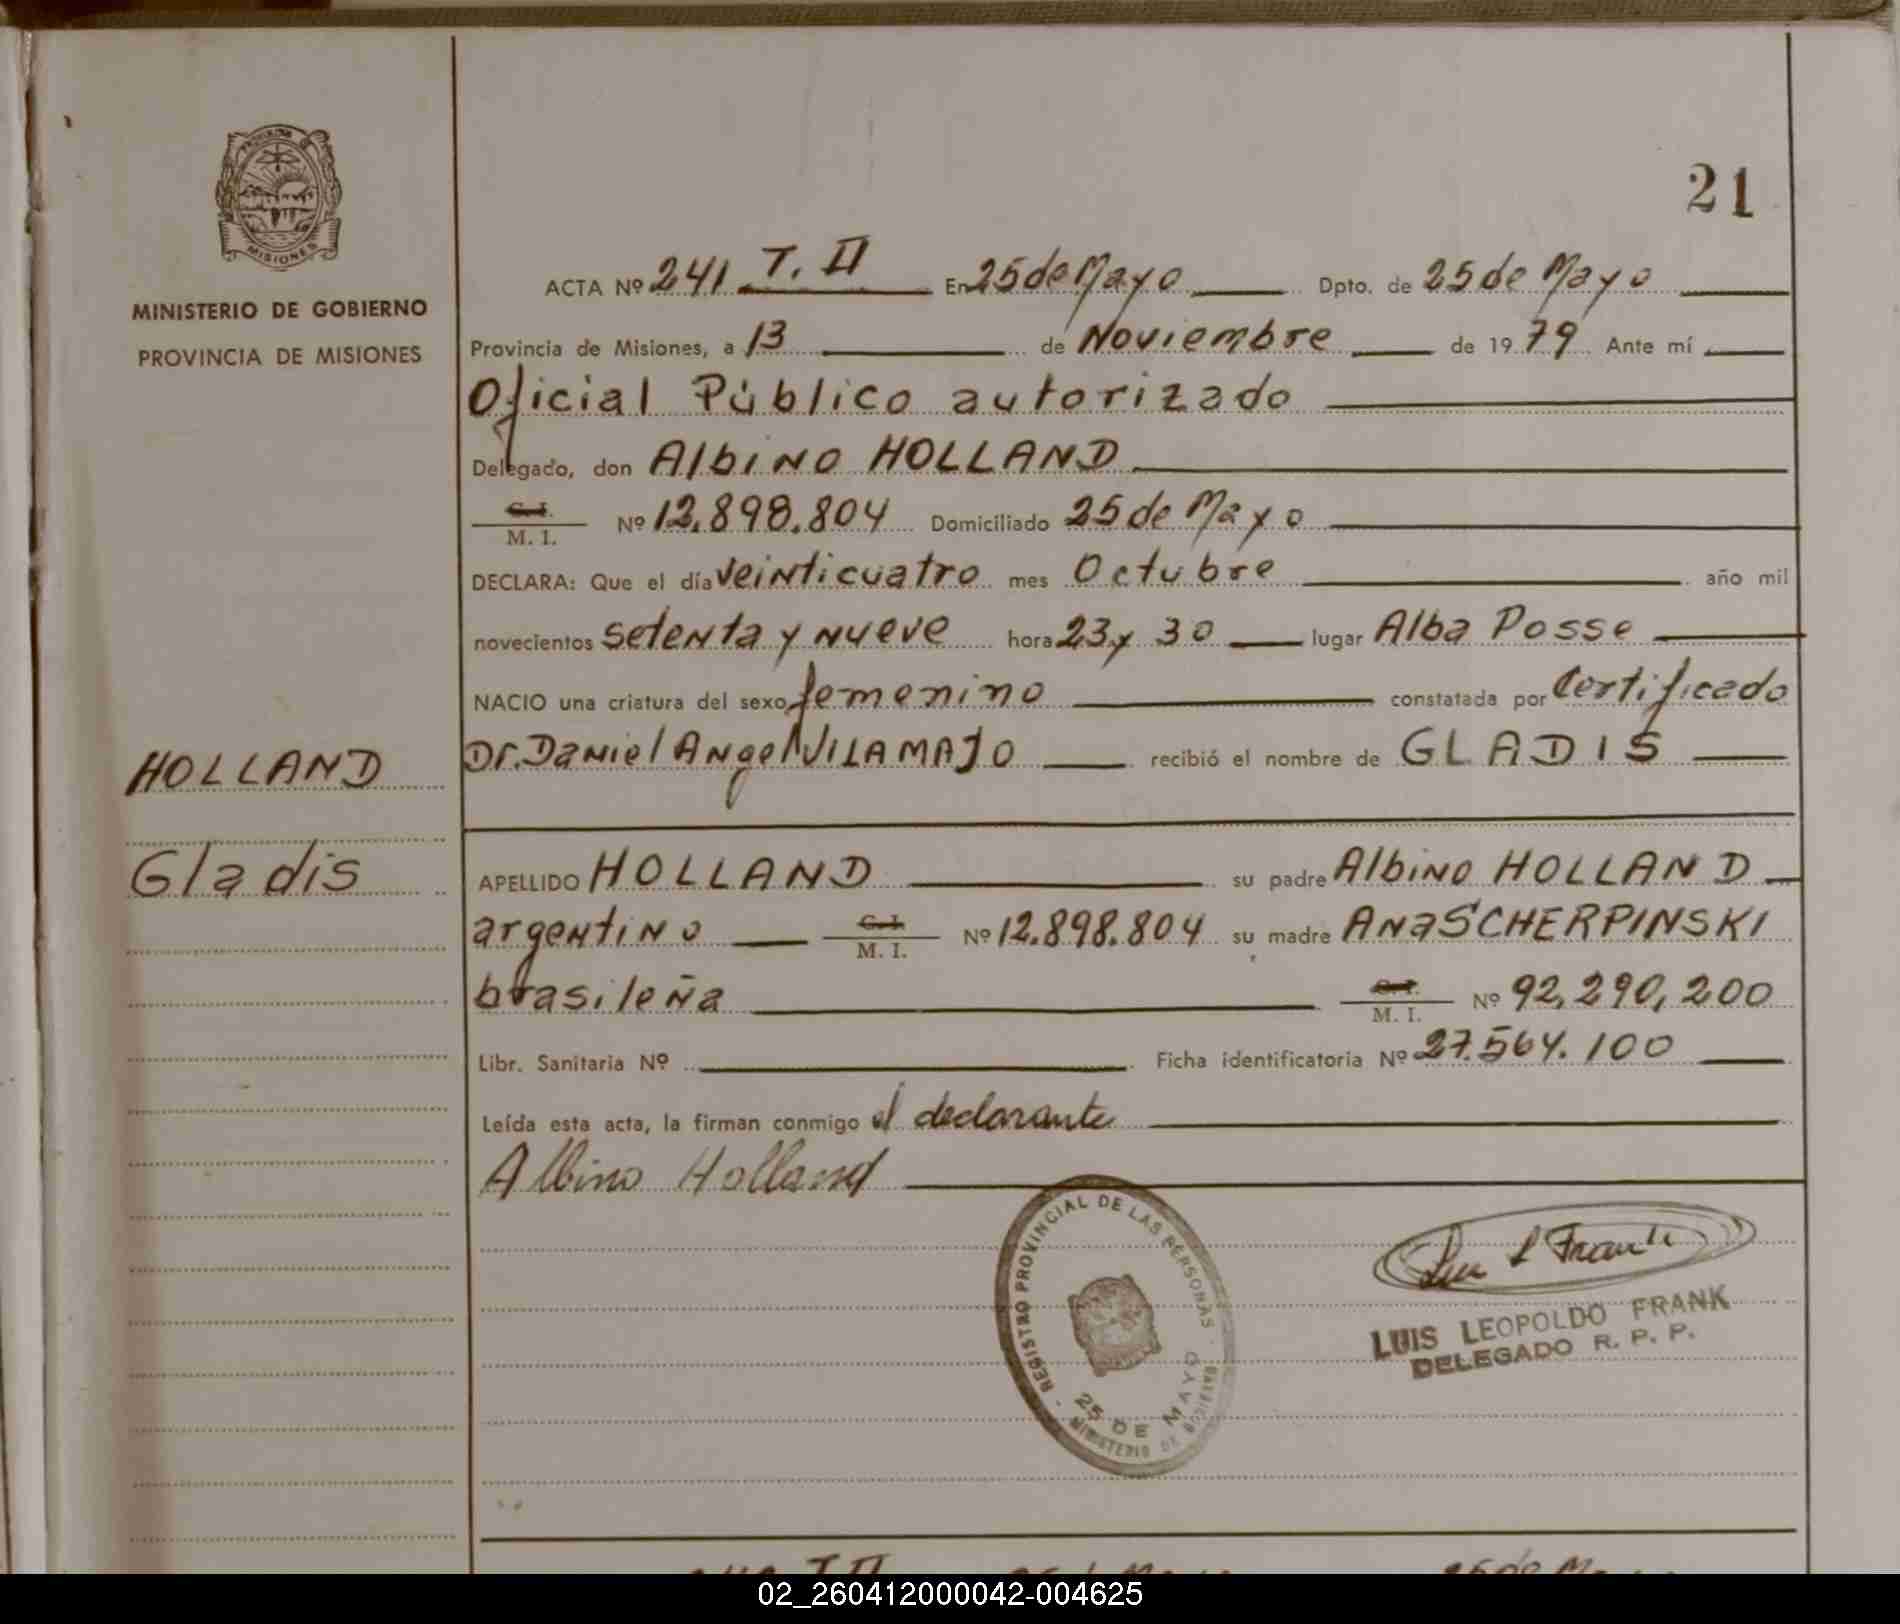 21
PROVINCIA
MISIONES
MINISTERIO DE GOBIERNO
PROVINCIA DE MISIONES
ACTA Nº 241 T. II En 25 de Mayo Dpto. de 25 de Mayo
Provincia de Misiones, a 13 de Noviembre de 1979 Ante mí
Oficial Público autorizado
Delegado, don Albino HOLLAND
C. I.
M. I. Nº 12.898.804 Domiciliado 25 de Mayo
DECLARA: Que el día veinticuatro mes Octubre año mil
novecientos setenta y nueve hora 23 y 30 lugar Alba Posse
NACIO una criatura del sexo femenino constatada por Certificado
Dr. Daniel Angel VILAMAJO recibió el nombre de GLADIS
HOLLAND
Gladis
APELLIDO HOLLAND su padre Albino HOLLAND
argentino C. I. M. I. Nº 12.898.804 su madre Ana SCHERPINSKI
brasileña C. I. M. I. Nº 92,290,200
Libr. Sanitaria Nº Ficha identificatoria Nº 27.564.100
Leída esta acta, la firman conmigo el declarante
Albino Holland
REGISTRO PROVINCIAL DE LAS PERSONAS
25 DE MAYO
MINISTERIO DE GOBIERNO
Luis L Frank
LUIS LEOPOLDO FRANK
DELEGADO R. P. P.
02_260412000042-004625